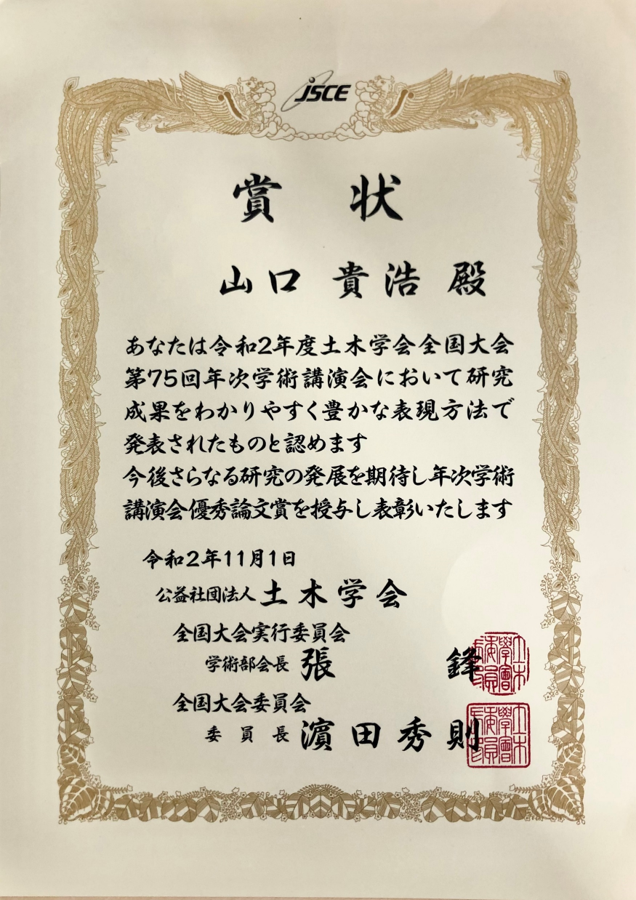 JSCE
賞状
山口 貴浩 殿
あなたは令和2年度土木学会全国大会
第75回年次学術講演会において研究
成果をわかりやすく豊かな表現方法で
発表されたものと認めます
今後さらなる研究の発展を期待し年次学術
講演会優秀論文賞を授与し表彰いたします
令和2年11月1日
公益社団法人 土木学会
全国大会実行委員会
学術部会長 張 鋒
全国大会委員会
委員長 濵田秀則